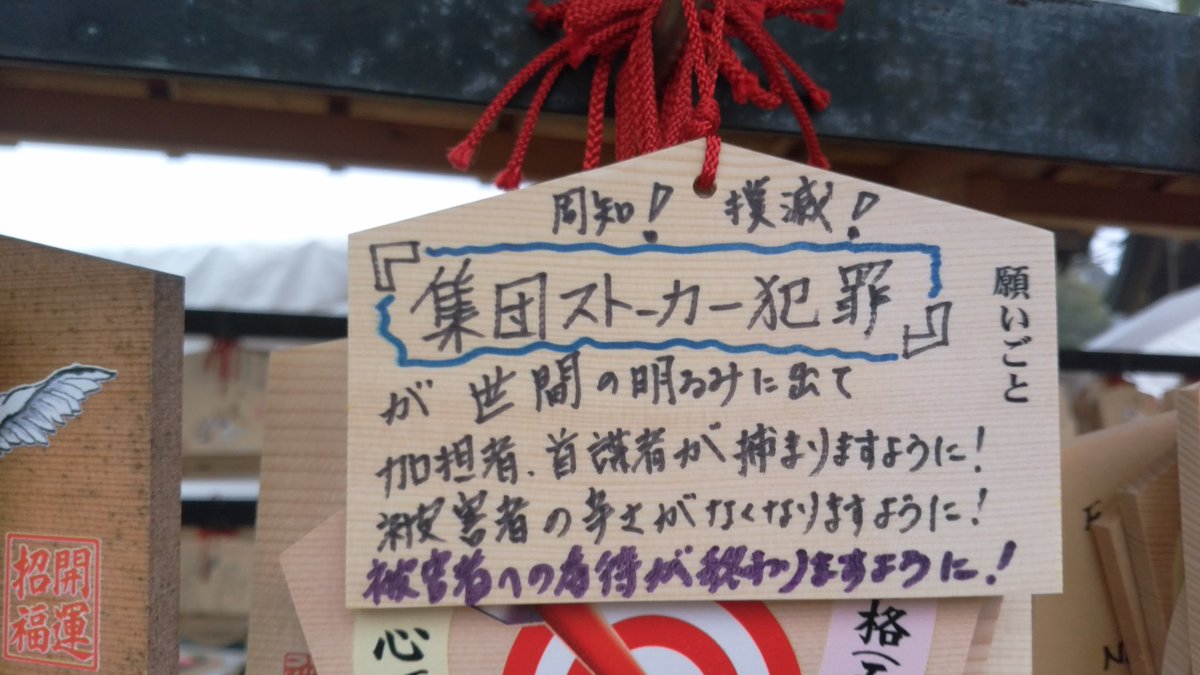 周知! 撲滅!
『集団ストーカー犯罪』
が世間の明るみに出て
加担者、首謀者が捕まりますように!
被害者の辛さがなくなりますように!
被害者への虐待が終わりますように!
願いごと
開運
招福
心
格(
F
N